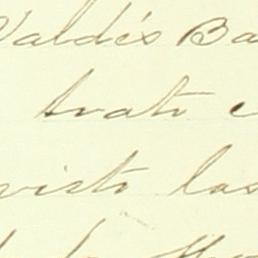 Valdés Ba
trato c
visto las